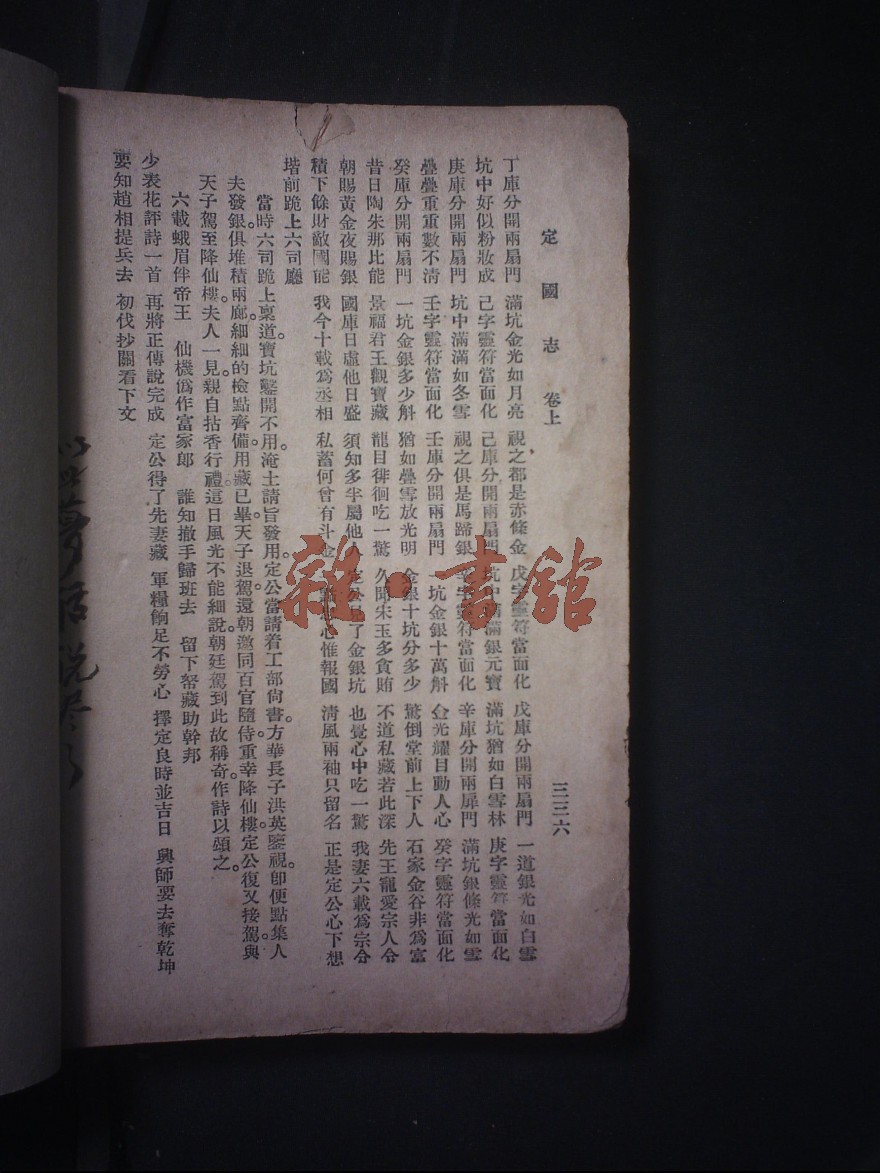 定國志 卷上 三三六
丁庫分開兩扇門 滿坑金光如月亮 視之都是赤條金 戊字靈符當面化 戊庫分開兩扇門 一道銀光如白雪
坑中好似粉妝成 己字靈符當面化 己庫分開兩扇門 坑中滿銀元寶 滿坑猶如白雪林 庚字靈符當面化
庚庫分開兩扇門 坑中滿滿如冬雪 視之俱是馬蹄銀 辛字靈符當面化 辛庫分開兩扉門 滿坑銀條光如雪
疊疊重重數不清 壬字靈符當面化 壬庫分開兩扇門 一坑金銀十萬斛 金光耀目動人心 癸字靈符當面化
癸庫分開兩扇門 一坑金銀多少斛 猶如疊雪放光明 金銀十坑分多少 驚倒堂前上下人 石家金谷非爲富
昔日陶朱那比能 景福君王觀寶藏 龍目徘徊吃一驚 久聞宋玉多貪賄 不道私藏若此深 先王寵愛宗人令
朝賜黃金夜賜銀 國庫日虛他日盛 須知多半屬他人 定公見了金銀坑 也覺心中吃一驚 我妻六載爲宗令
積下餘財敵國能 我今十載爲丞相 私蓄何曾有斗金 心惟報國 清風兩袖只留名 正是定公心下想
堦前跪上六司廳
當時六司跪上稟道寶坑鑿開不用淹土請旨發用。定公當請着工部尙書。方華長子洪英鑒視。卽便點集人
夫發銀俱堆積兩廊。細細的檢點齊備。用藏已畢。天子退駕還朝。邀同百官隨侍。重幸降仙樓。定公復又接駕。與
天子駕至降仙樓。夫人一見。親自拈香行禮。這日風光不能細說。朝廷駕到此故稱奇。作詩以頌之。
六載蛾眉伴帝王 仙機僞作富家郎 誰知撤手歸班去 留下帑藏助幹邦
少表花評詩一首 再將正傳說完成 定公得了先妻藏 軍糧餉足不勞心 擇定良時並吉日 興師要去奪乾坤
要知趙相提兵去 初伐抄關看下文
夢
雜·書館